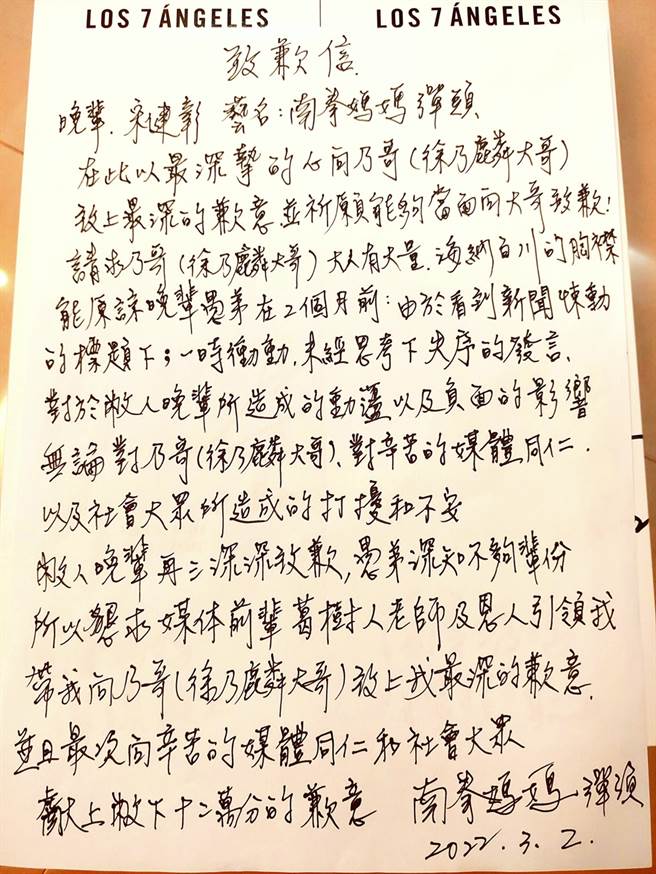 LOS 7 ÁNGELES LOS 7 ÁNGELES
致歉信
晚輩.宋健彰 藝名:南拳媽媽 彈頭
在此以最深摯的心向乃哥(徐乃麟大哥)
致上最深的歉意並祈願能夠當面向大哥致歉!
請求乃哥(徐乃麟大哥)大人有大量.海納百川的胸襟
能原諒晚輩愚弟在2個月前:由於看到新聞悚動
的標題下;一時衝動.未經思考下失序的發言、
對於敝人晚輩所造成的動盪以及負面的影響
無論對乃哥(徐乃麟大哥)、對辛苦的媒體同仁.
以及社會大眾所造成的打擾和不安
敝人晚輩再三深深致歉,愚弟深知不夠輩份
所以懇求媒体前輩葛樹人老師及恩人引領我
帶我向乃哥(徐乃麟大哥)致上我最深的歉意.
並且最次向辛苦的媒體同仁和社會大眾
獻上敝下十二萬分的歉意 南拳媽媽彈頭
2022.3.2.